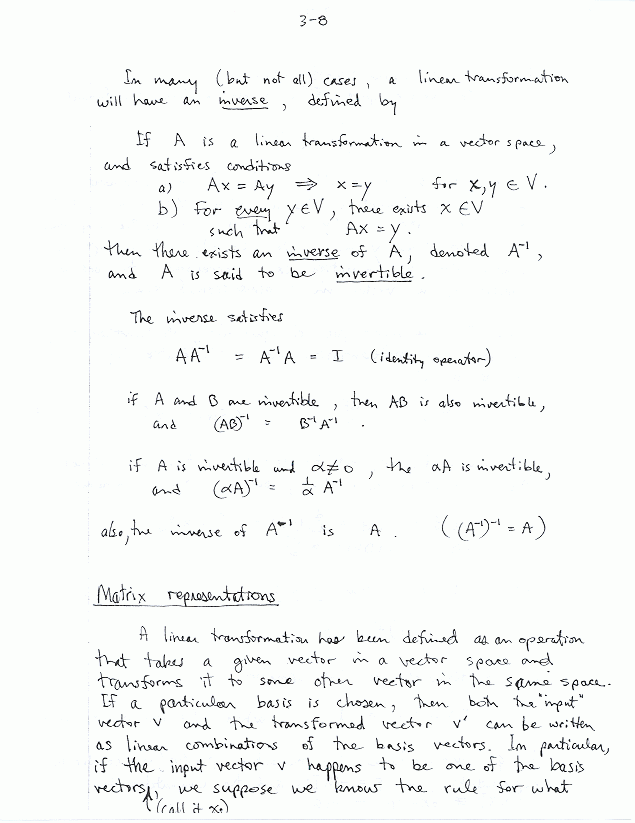 3-8
In many (but not all) cases, a linear transformation
will have an inverse, defined by
If A is a linear transformation in a vector space,
and satisfies conditions
a) Ax = Ay ⇒ x = y for x, y ∈ V.
b) For every y ∈ V, there exists x ∈ V
such that Ax = y.
then there exists an inverse of A, denoted A⁻¹,
and A is said to be invertible.
The inverse satisfies
AA⁻¹ = A⁻¹A = I (identity operator)
if A and B are invertible, then AB is also invertible,
and (AB)⁻¹ = B⁻¹A⁻¹.
if A is invertible and α≠0, the αA is invertible,
and (αA)⁻¹ = 1/α A⁻¹
also, the inverse of A⁻¹ is A. ((A⁻¹)⁻¹ = A)
Matrix representations
A linear transformation has been defined as an operation
that takes a given vector in a vector space and
transforms it to some other vector in the same space.
If a particular basis is chosen, then both the "input"
vector v and the transformed vector v' can be written
as linear combinations of the basis vectors. In particular,
if the input vector v happens to be one of the basis
vectors, we suppose we know the rule for what
(call it xᵢ)